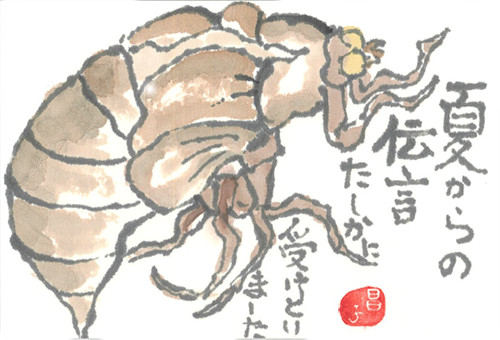 夏からの
伝言
たしかに
受けとり
ました
昌子